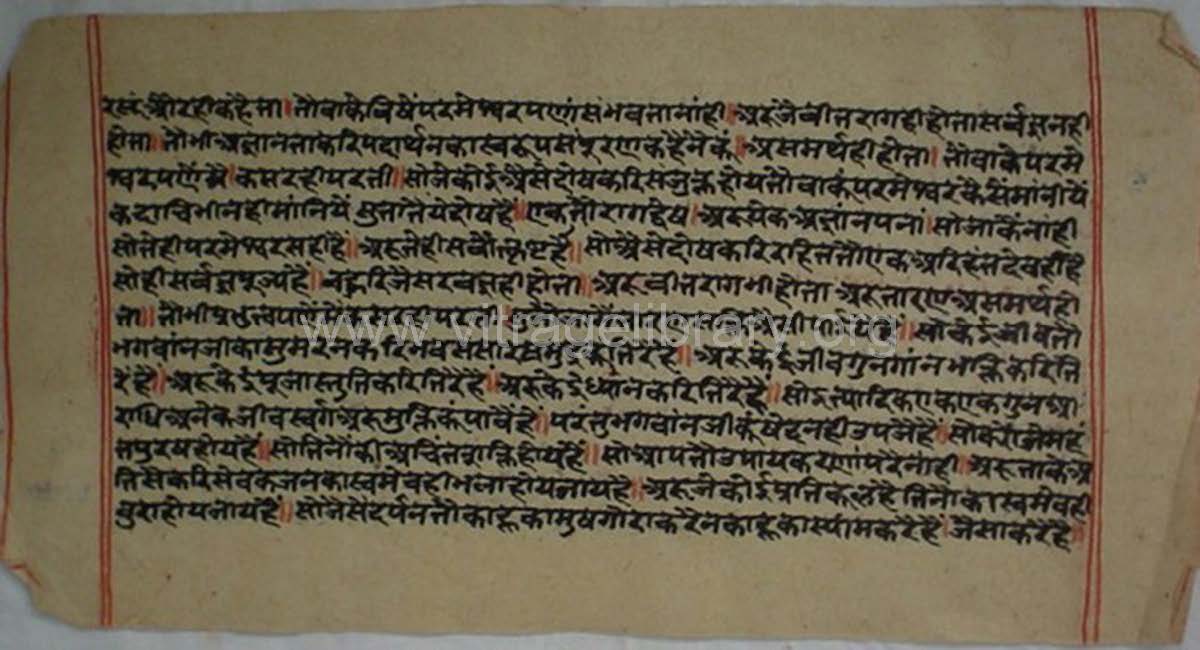 रस्सूं और ही कहै ता । तौ वाकै विषैं परमेश्वरपणां संभवता नांही । अरु जै वीतराग ही होता सर्वज्ञ नही
होता । तौ भी अज्ञानता करि पदार्थन का स्वरूप संपूरण कहैनैकूं । असमर्थ ही होता । तौ वाकै परमे
श्वरपणैं मै । कसर ही परती । सो जे कोई ऐसे दोष करि संजुक्त होय तौ वाकूं परमेश्वर कैसैं मांनीयें
कदाचि भी नही मांनियें मुतानैं ये दोष है । एक तौ राग द्वेष । अरु येक अज्ञांनपनां । सो जाकै नांही
सो तेही परमेश्वर सही है । अरु तेही सर्वोत्कृष्ट है । सो ऐसे दोष करि रहित तौ एक अरिहंतदेव ही है
सो ही सर्वज्ञ पूज्य है । बहुरि जै सरवज्ञ ही होता । अरु वीतराग भी होता अरु तारण असमर्थ हो
ता । तौ भी प्रभुत्वपणैं मैं कसर
www.vitragelibrary.org
सो केई जीव तौ
भगवांनजी का सुमरन करि भव संसार समुद्र तिरै है । अरु केई जीव गुनगांन भक्ति करि ति
रै है । अरु केई पूजा स्तुति करि तिरै है । अरु केई ध्यांन करि तिरै है । सो इत्यादिक एक एक गुन आ
राधि अनेक जीव स्वर्ग अरु मुक्तिकूं पावै है । परंतु भगवांनजीकूं षेद नही उपजै है । सो
त पुरष होय है । सो तिनौंकी अचिंत शक्ति होय है । सो आप तौ उपाय करणां परै नांही । अरु ताकै अ
तिसै करि सेवक जन का स्वमेव ही भला होय जाय है । अरु जे कोई प्रतिकूल है तिनौं का स्वमेव ही
बुरा होय जाय है । सो जैसैं दर्पन तौ काहू का मुष गोरा करै न काहू का स्यांम करै है । जैसा करै है